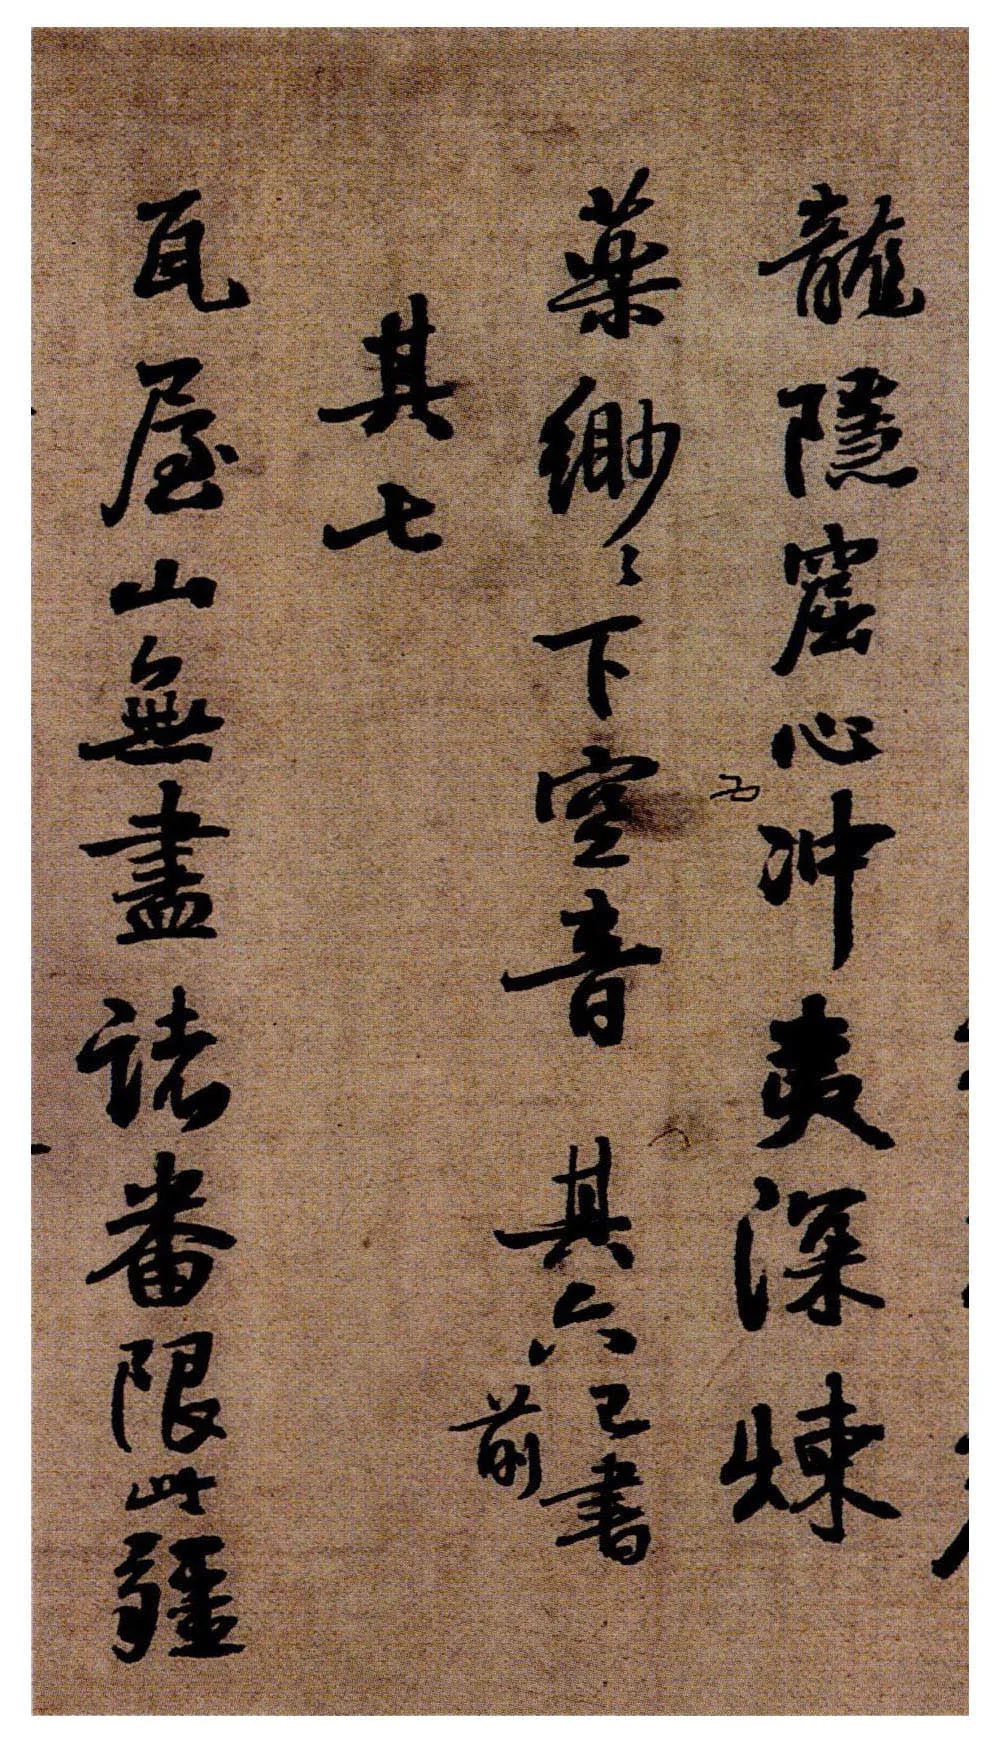 龍隱窟心冲夷深煉
藥緲〻下空音 其六已書前
其七
瓦屋山無盡諸番限此疆